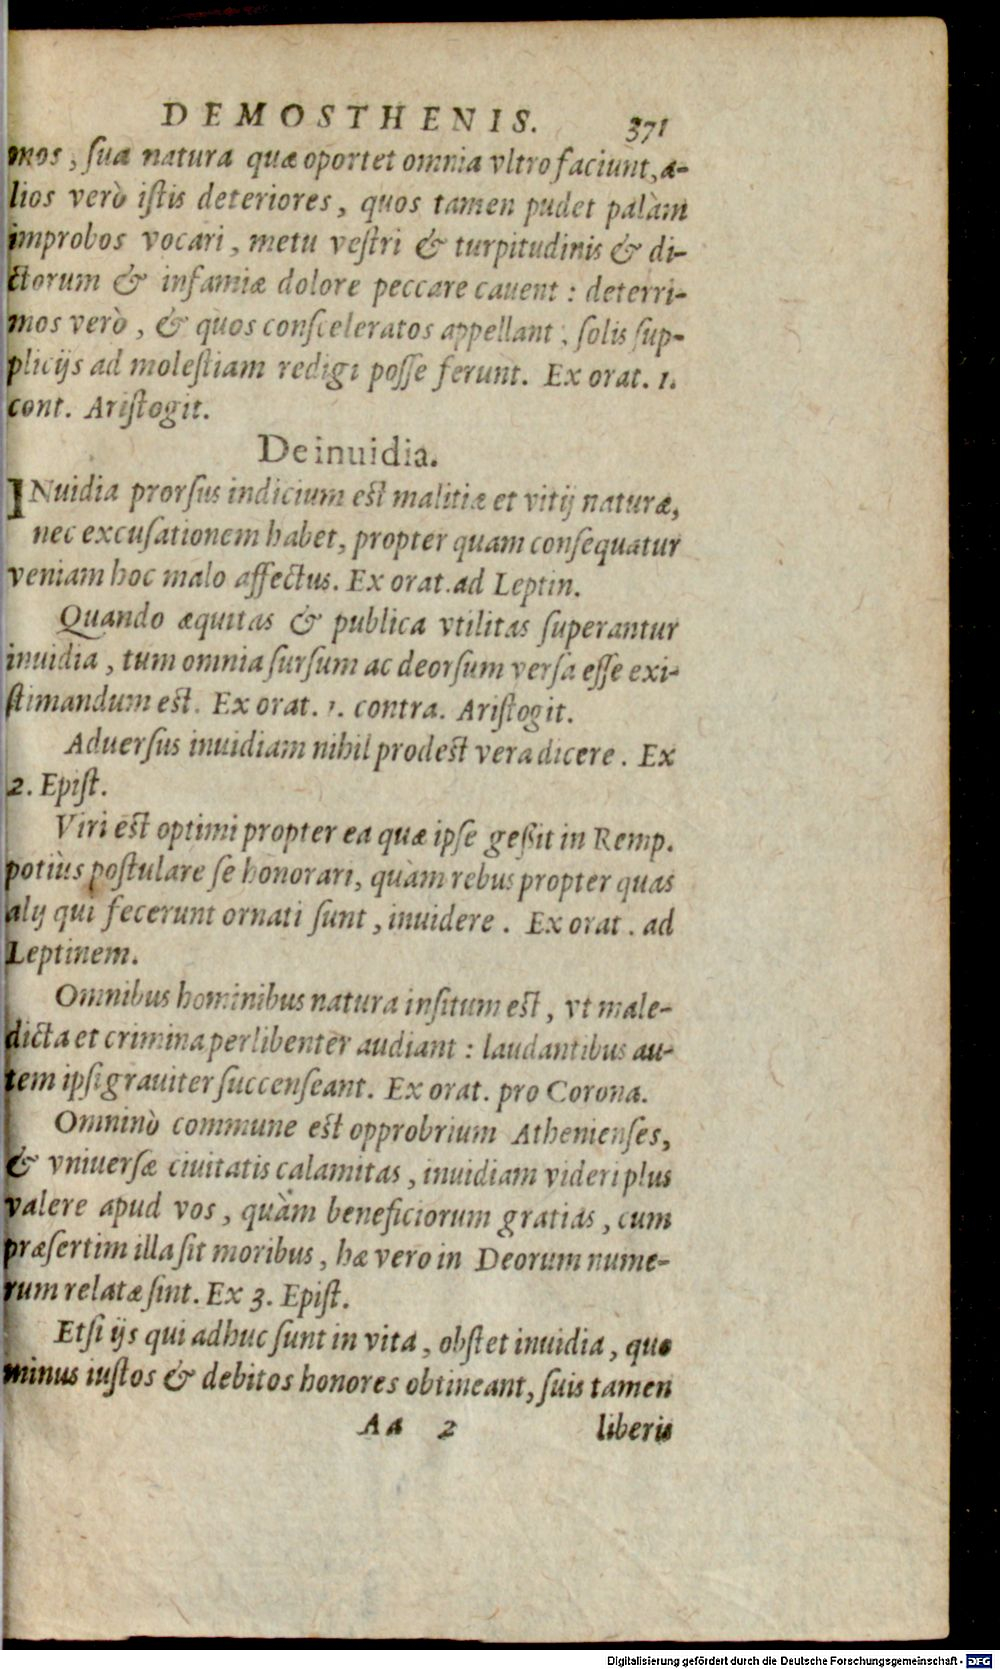 DEMOSTHENIS. 371
mos, ſua natura quæ oportet omnia vltro faciunt, a-
lios verò iſtis deteriores, quos tamen pudet palàm
improbos vocari, metu veſtri & turpitudinis & di-
ctorum & infamiæ dolore peccare cauent : deterri-
mos verò, & quos conſceleratos appellant, ſolis ſup-
plicijs ad moleſtiam redigi poſſe ferunt. Ex orat. 1.
cont. Ariſtogit.
De inuidia.
INuidia prorſus indicium eſt malitiæ et vitij naturæ,
nec excuſationem habet, propter quam conſequatur
veniam hoc malo affectus. Ex orat. ad Leptin.
Quando æquitas & publica vtilitas ſuperantur
inuidia, tum omnia ſurſum ac deorſum verſa eſſe exi-
ſtimandum eſt. Ex orat. 1. contra. Ariſtogit.
Aduerſus inuidiam nihil prodeſt vera dicere. Ex
2. Epiſt.
Viri eſt optimi propter ea quæ ipſe geßit in Remp.
potiùs poſtulare ſe honorari, quàm rebus propter quas
alij qui fecerunt ornati ſunt, inuidere. Ex orat. ad
Leptinem.
Omnibus hominibus natura inſitum eſt, vt male-
dicta et crimina perlibenter audiant : laudantibus au-
tem ipſi grauiter ſuccenſeant. Ex orat. pro Corona.
Omninò commune eſt opprobrium Athenienſes,
& vniuerſæ ciuitatis calamitas, inuidiam videri plus
valere apud vos, quàm beneficiorum gratias, cum
præſertim illa ſit moribus, hæ vero in Deorum nume-
rum relatæ ſint. Ex 3. Epiſt.
Etſi ijs qui adhuc ſunt in vita, obſtet inuidia, quo
minus iuſtos & debitos honores obtineant, ſuis tamen
Aa 2 liberis
Digitalisierung gefördert durch die Deutsche Forschungsgemeinschaft - DFG